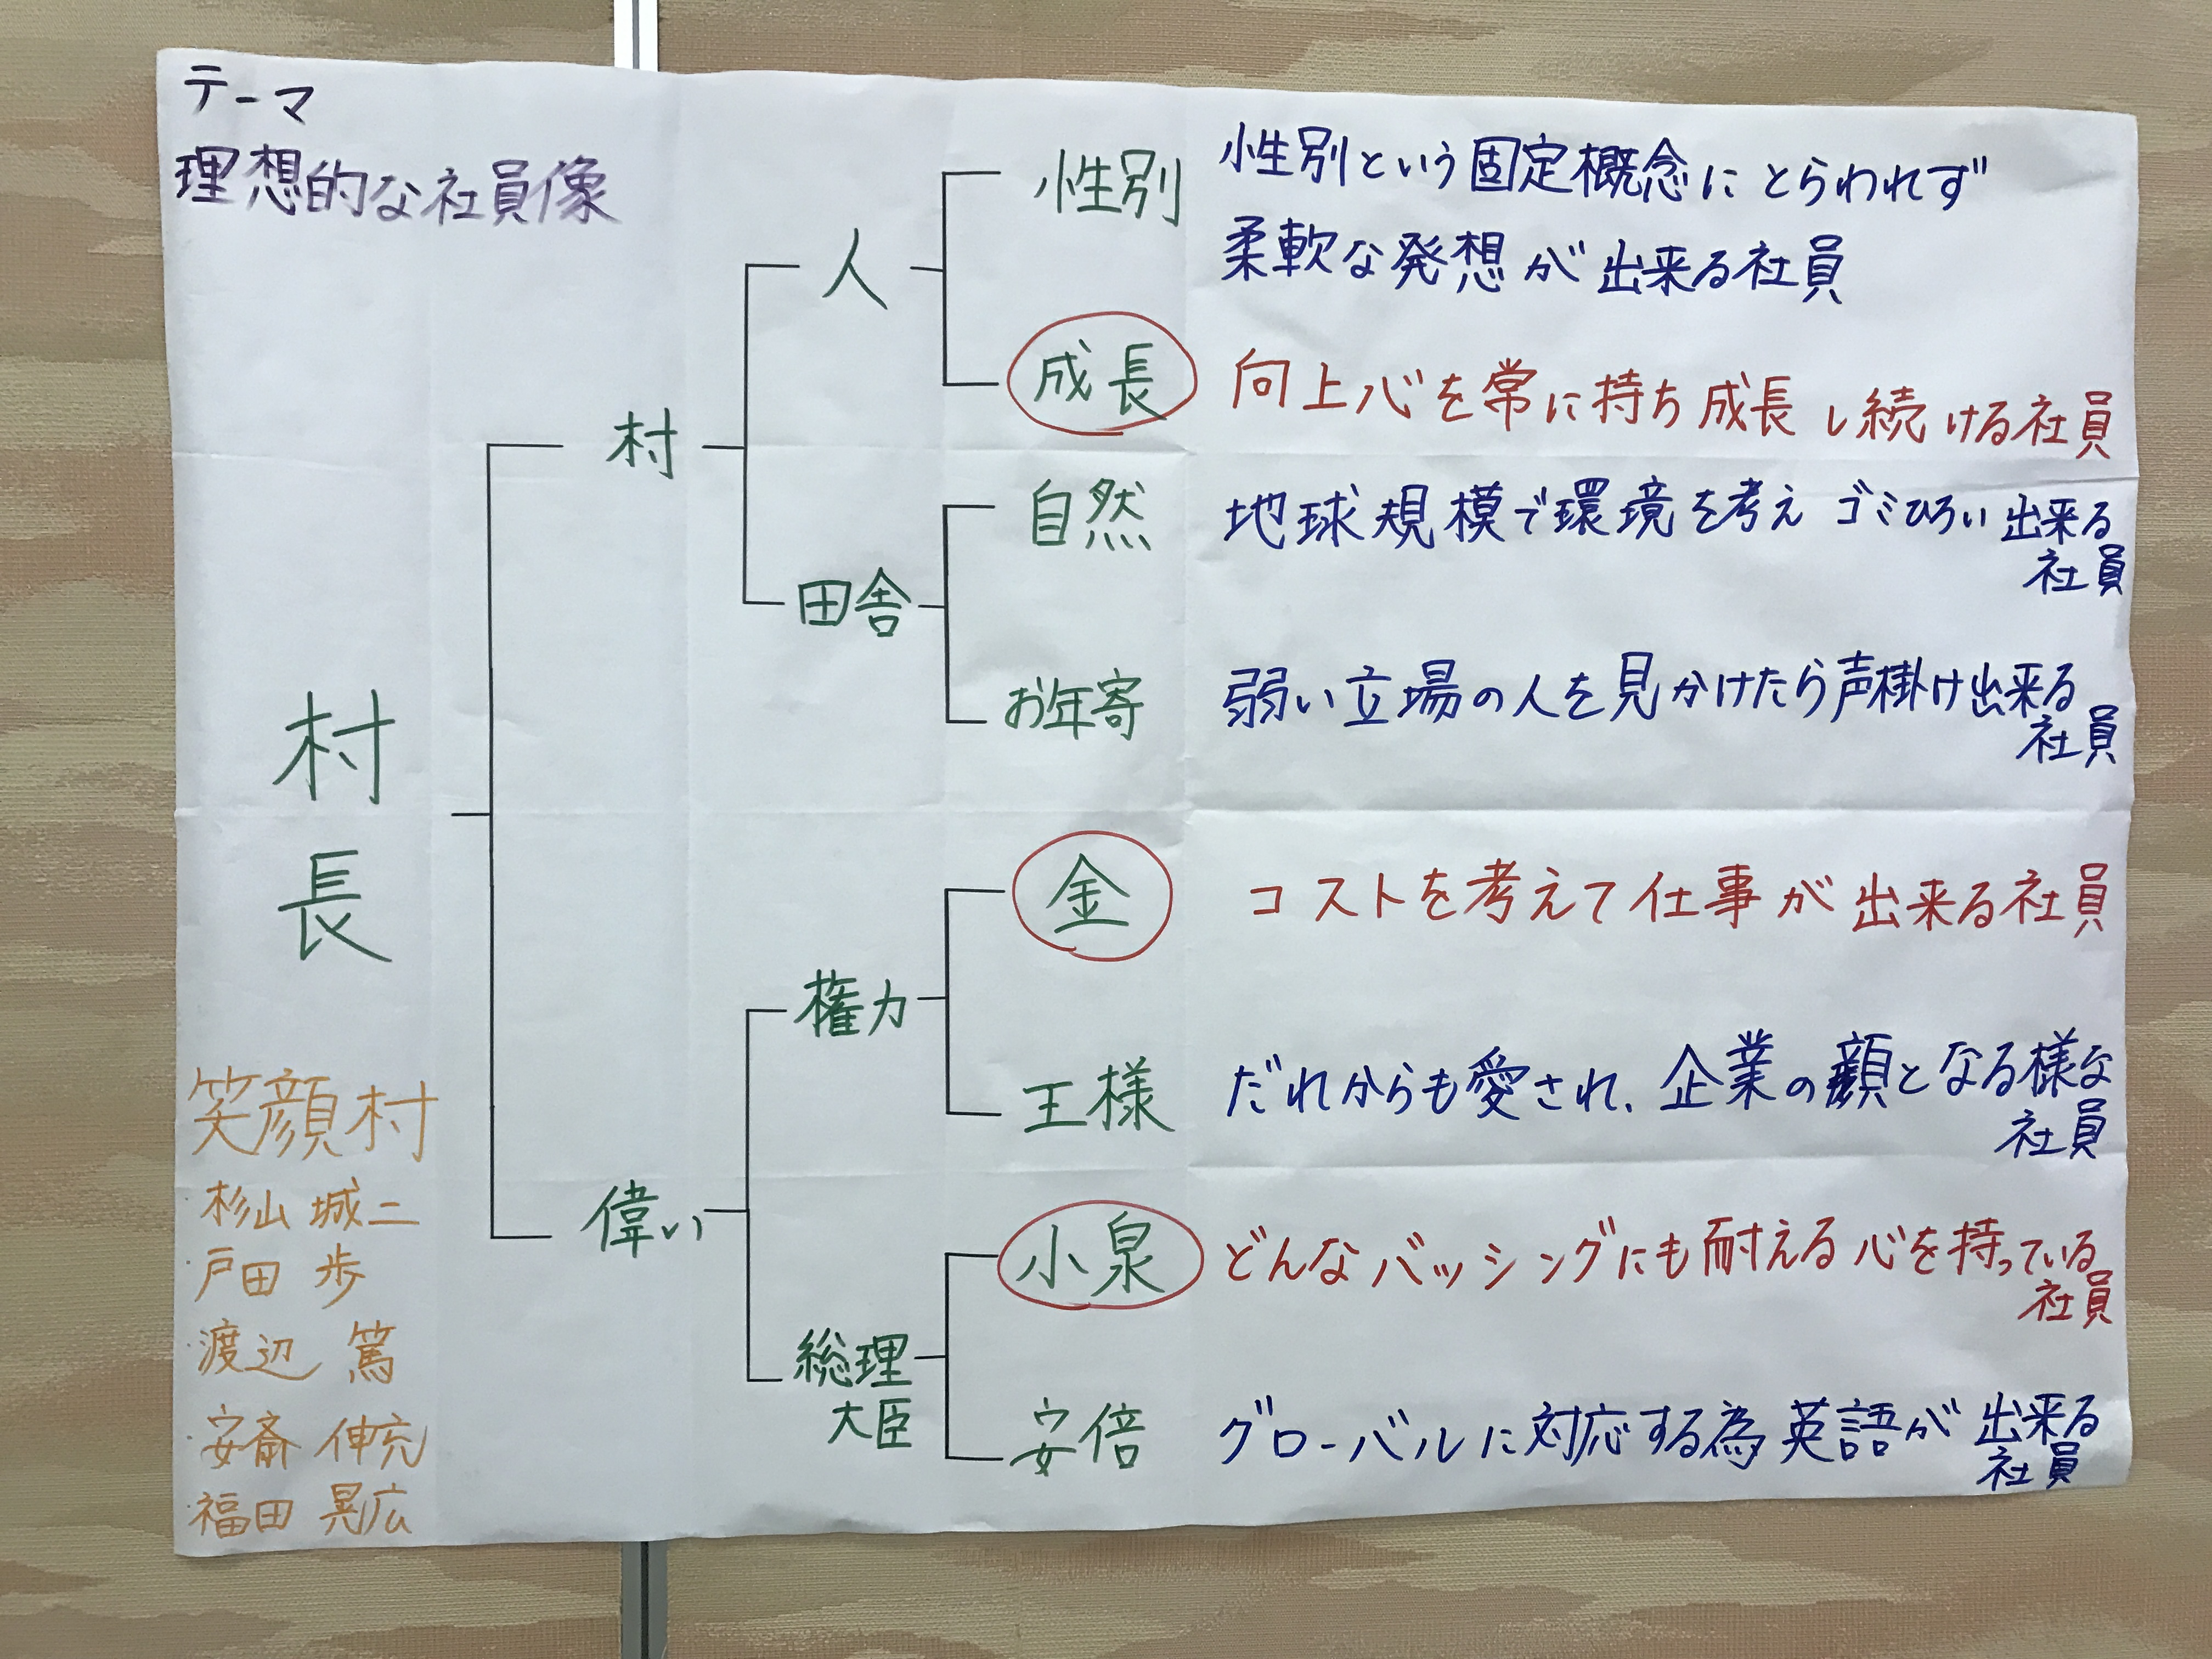 テーマ
理想的な社員像
村長
村
偉い
人
田舎
権力
総理
大臣
性別
性別という固定概念にとらわれず
柔軟な発想が出来る社員
成長
向上心を常に持ち成長し続ける社員
自然
地球規模で環境を考えゴミひろい出来る
社員
お年寄
弱い立場の人を見かけたら声掛け出来る
社員
金
コストを考えて仕事が出来る社員
王様
だれからも愛され、企業の顔となる様な
社員
小泉
どんなバッシングにも耐える心を持っている
社員
安倍
グローバルに対応する為英語が出来る
社員
笑顔村
杉山 城二
戸田 歩
渡辺 篤
安斎 伸充
福田 晃広